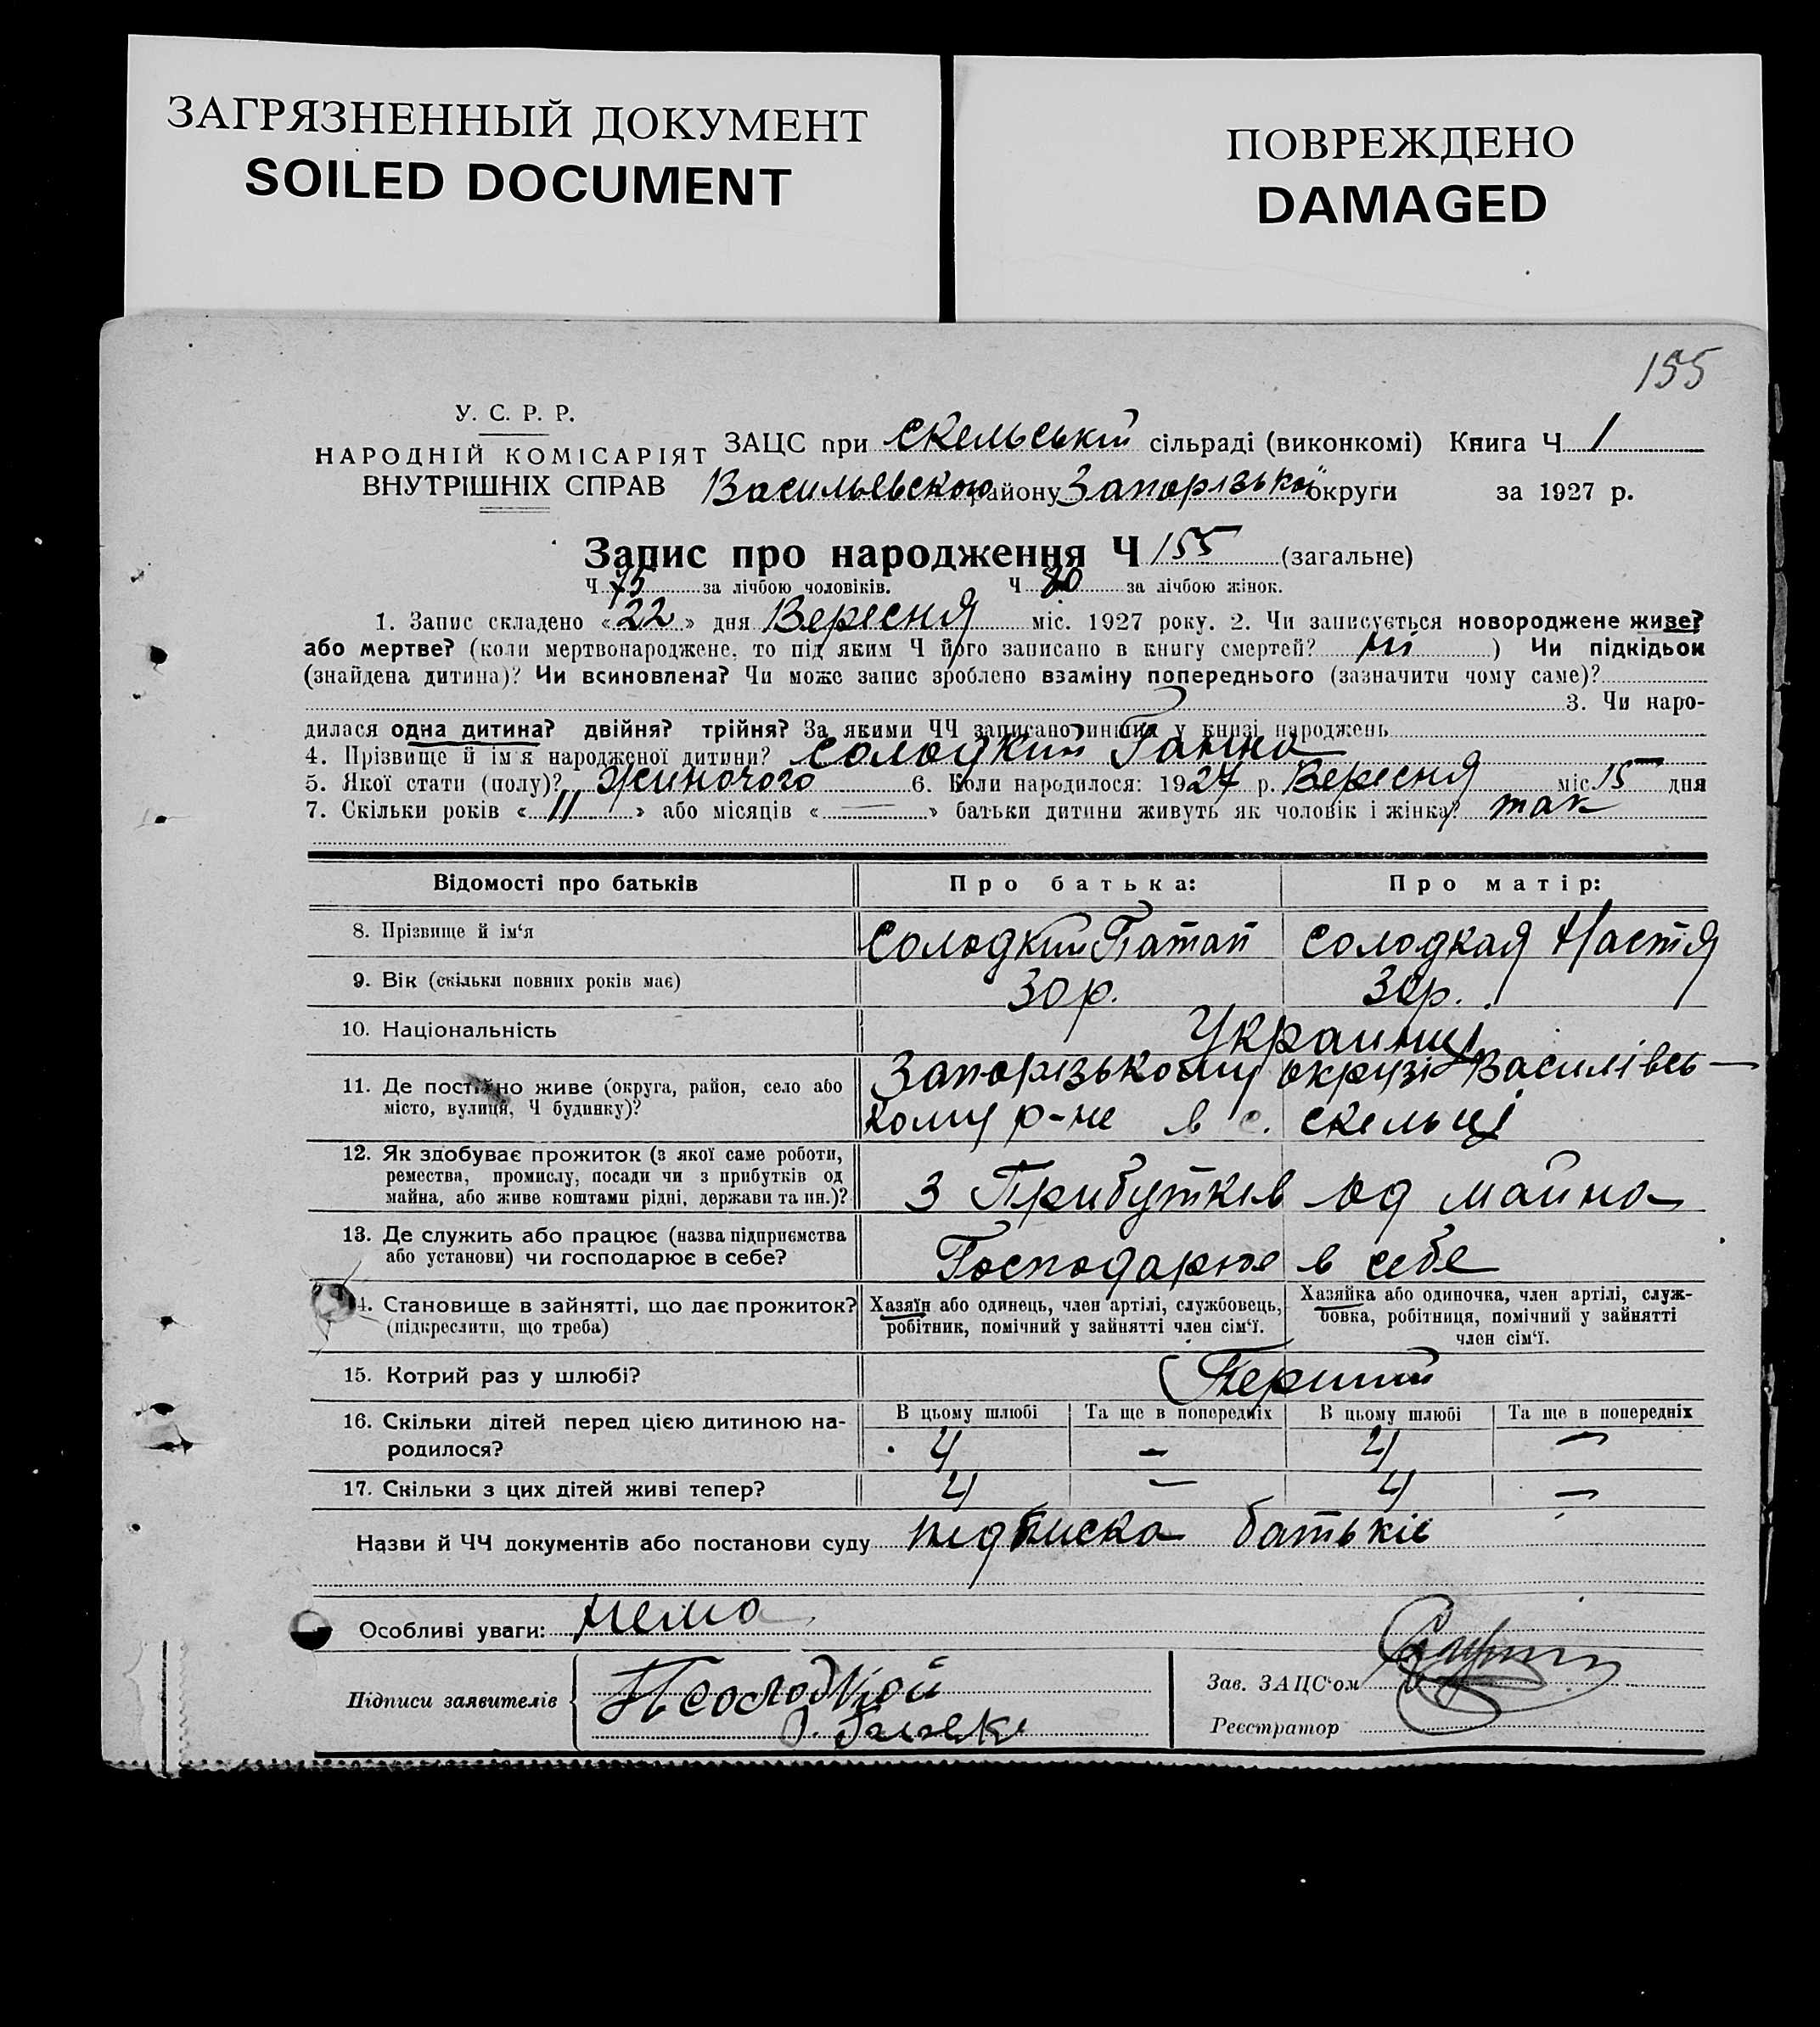 ЗАГРЯЗНЕННЫЙ ДОКУМЕНТ
SOILED DOCUMENT
ПОВРЕЖДЕНО
DAMAGED
155
У. С. Р. Р.
НАРОДНІЙ КОМІСАРІЯТ
ВНУТРІШНІХ СПРАВ
ЗАЦС при Скельській сільраді (виконкомі) Книга Ч 1
Васильевского району Запорізької округи за 1927 р.
Запис про народження Ч 155 (загальне)
Ч 75 за лічбою чоловіків. Ч 80 за лічбою жінок.
1. Запис складено «22» дня Вересня міс. 1927 року. 2. Чи записується новороджене живе?
або мертве? (коли мертвонароджене, то під яким Ч його записано в книгу смертей? ні ) Чи підкідьок
(знайдена дитина)? Чи всиновлена? Чи може запис зроблено взаміну попереднього (зазначити чому саме)?
3. Чи наро-
дилася одна дитина? двійня? трійня? За якими ЧЧ записано инших у книзі народжень
4. Прізвище й ім'я народженої дитини? Солодкий Ганна
5. Якої стати (полу)? Жиночого 6. Коли народилося: 1927 р. Вересня міс 15 дня
7. Скільки років «11» або місяців «—» батьки дитини живуть як чоловік і жінка? так
Відомості про батьків Про батька: Про матір:
8. Прізвище й ім'я Солодкий Патап Солодкая Настя
9. Вік (скільки повних років має) 30 р. 30 р.
10. Національність Украинці
11. Де постійно живе (округа, район, село або Запорізькому окрузі Василівсь-
місто, вулиця, Ч будинку)? кому р-не в с. Скельці
12. Як здобуває прожиток (з якої саме роботи,
ремества, промислу, посади чи з прибутків од
майна, або живе коштами рідні, держави та ин.)? З Прибутків од майна
13. Де служить або працює (назва підприємства
або установи) чи господарює в себе? Господарює в себе
14. Становище в зайнятті, що дає прожиток? Хазяїн або одинець, член артілі, службовець, Хазяйка або одиночка, член артілі, служ-
(підкреслити, що треба) робітник, помічний у зайнятті член сім'ї. бовка, робітниця, помічний у зайнятті
член сім'ї.
15. Котрий раз у шлюбі? Перший
16. Скільки дітей перед цією дитиною на- В цьому шлюбі Та ще в попередніх В цьому шлюбі Та ще в попередніх
родилося? 4 — 4 —
17. Скільки з цих дітей живі тепер? 4 — 4 —
Назви й ЧЧ документів або постанови суду підписка батьків
Особливі уваги: нема
Підписи заявителів П Солодкой
Зав. ЗАЦС'ом
Реєстратор